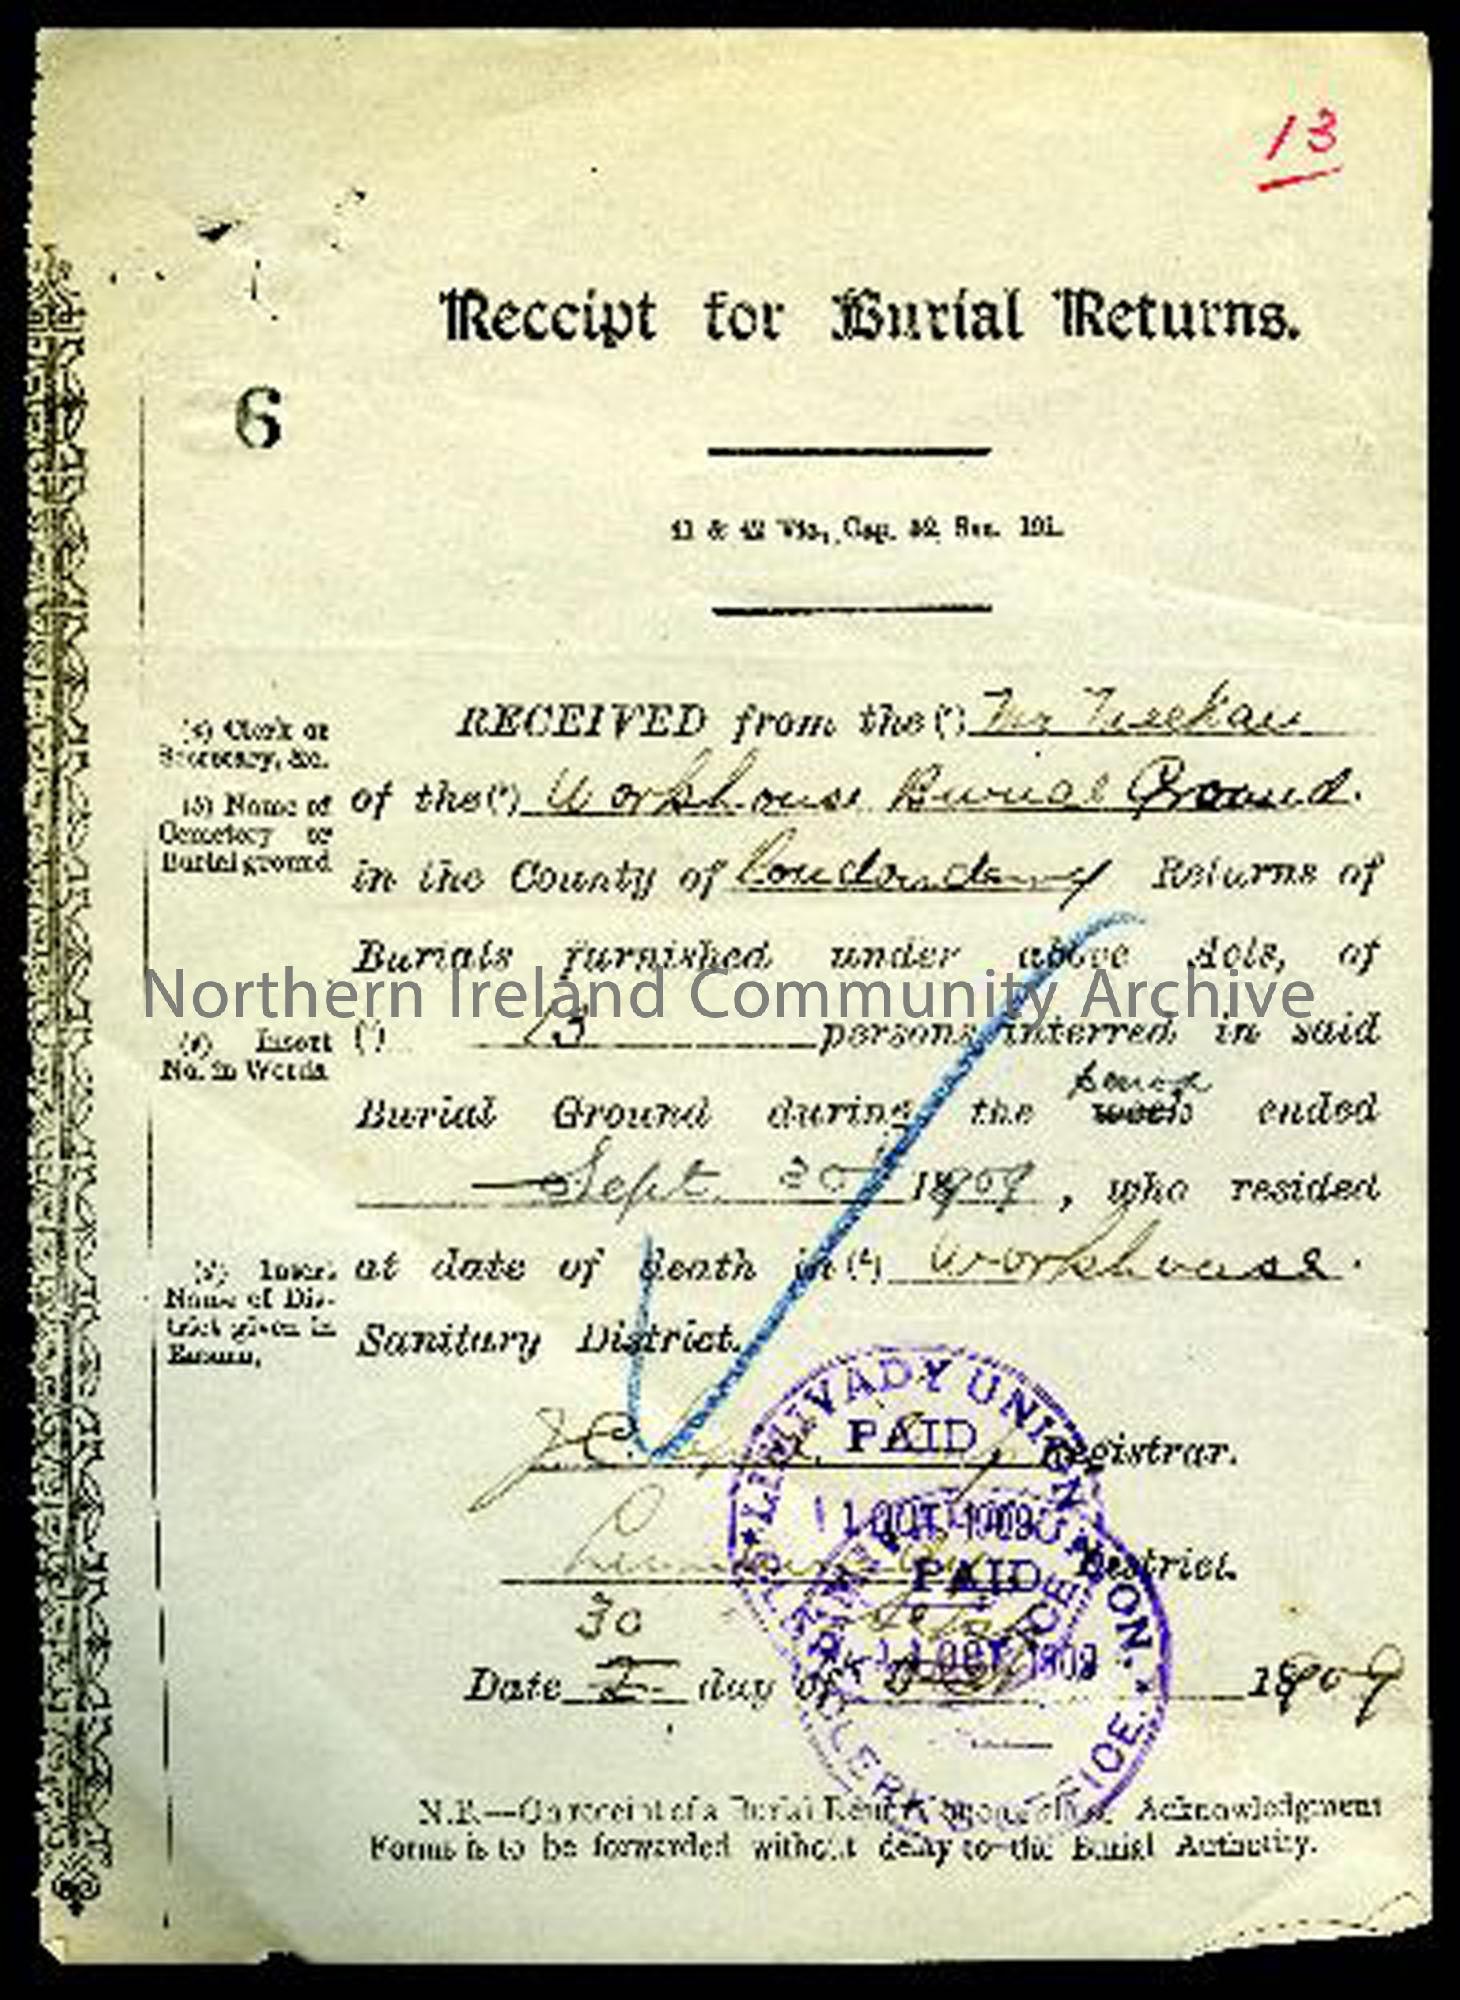 13
Receipt for Burial Returns.
6
41 & 42 Vic., Cap. 52, Sec. 191.
(a) Clerk or
Secretary, &c.
(b) Name of
Cemetery or
Burial ground
(c) Insert
No. in Words
(d) Insert
Name of Dis-
trict given in
RECEIVED from the (a) Mr
of the (b) Workhouse Burial Ground.
in the County of Londonderry Returns of
Burials furnished under above Acts, of
Northern Ireland Community Archive
(c) 13 persons interred in said
Burial Ground during the week ended
Sept. 30 1909, who resided
at date of death in (d) Workhouse.
Sanitary District.
J.C. Registrar.
District.
30 Sept
Date 2 day of Oct 1909
N.B.—On receipt of a Burial Return Acknowledgment
Forms is to be forwarded without delay to the Burial Authority.
LIMAVADY UNION
PAID
11 OCT 1909
CLERK'S OFFICE
PAID
11 OCT 1909
UNION
CLERK'S OFFICE